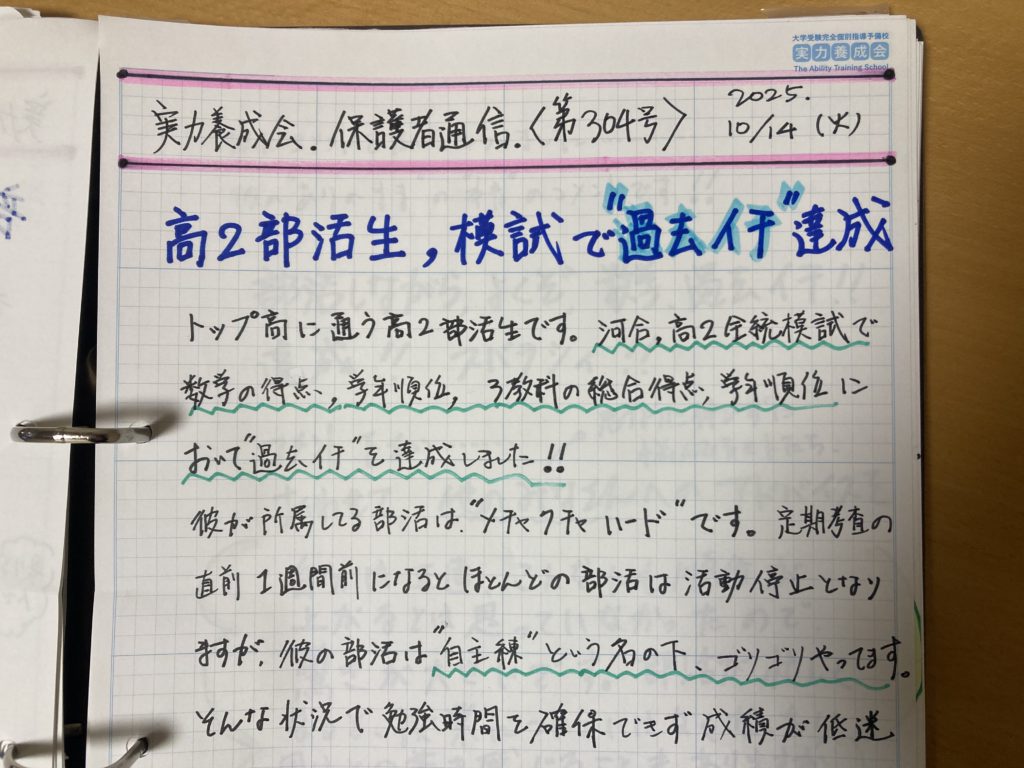 大学受験完全個別指導予備校
実力養成会
The Ability Training School
実力養成会.保護者通信.〈第304号〉
2025.
10/14(火)
高2部活生,模試で"過去イチ"達成
トップ高に通う高2部活生です。河合,高2全統模試で
数学の得点,学年順位,3教科の総合得点,学年順位に
おいて"過去イチ"を達成しました!!
彼が所属してる部活は"メチャクチャハード"です。定期考査の
直前1週間前になるとほとんどの部活は活動停止となり
ますが、彼の部活は"自主練"という名の下、ゴリゴリやってます。
そんな状況で勉強時間を確保できず成績が低迷